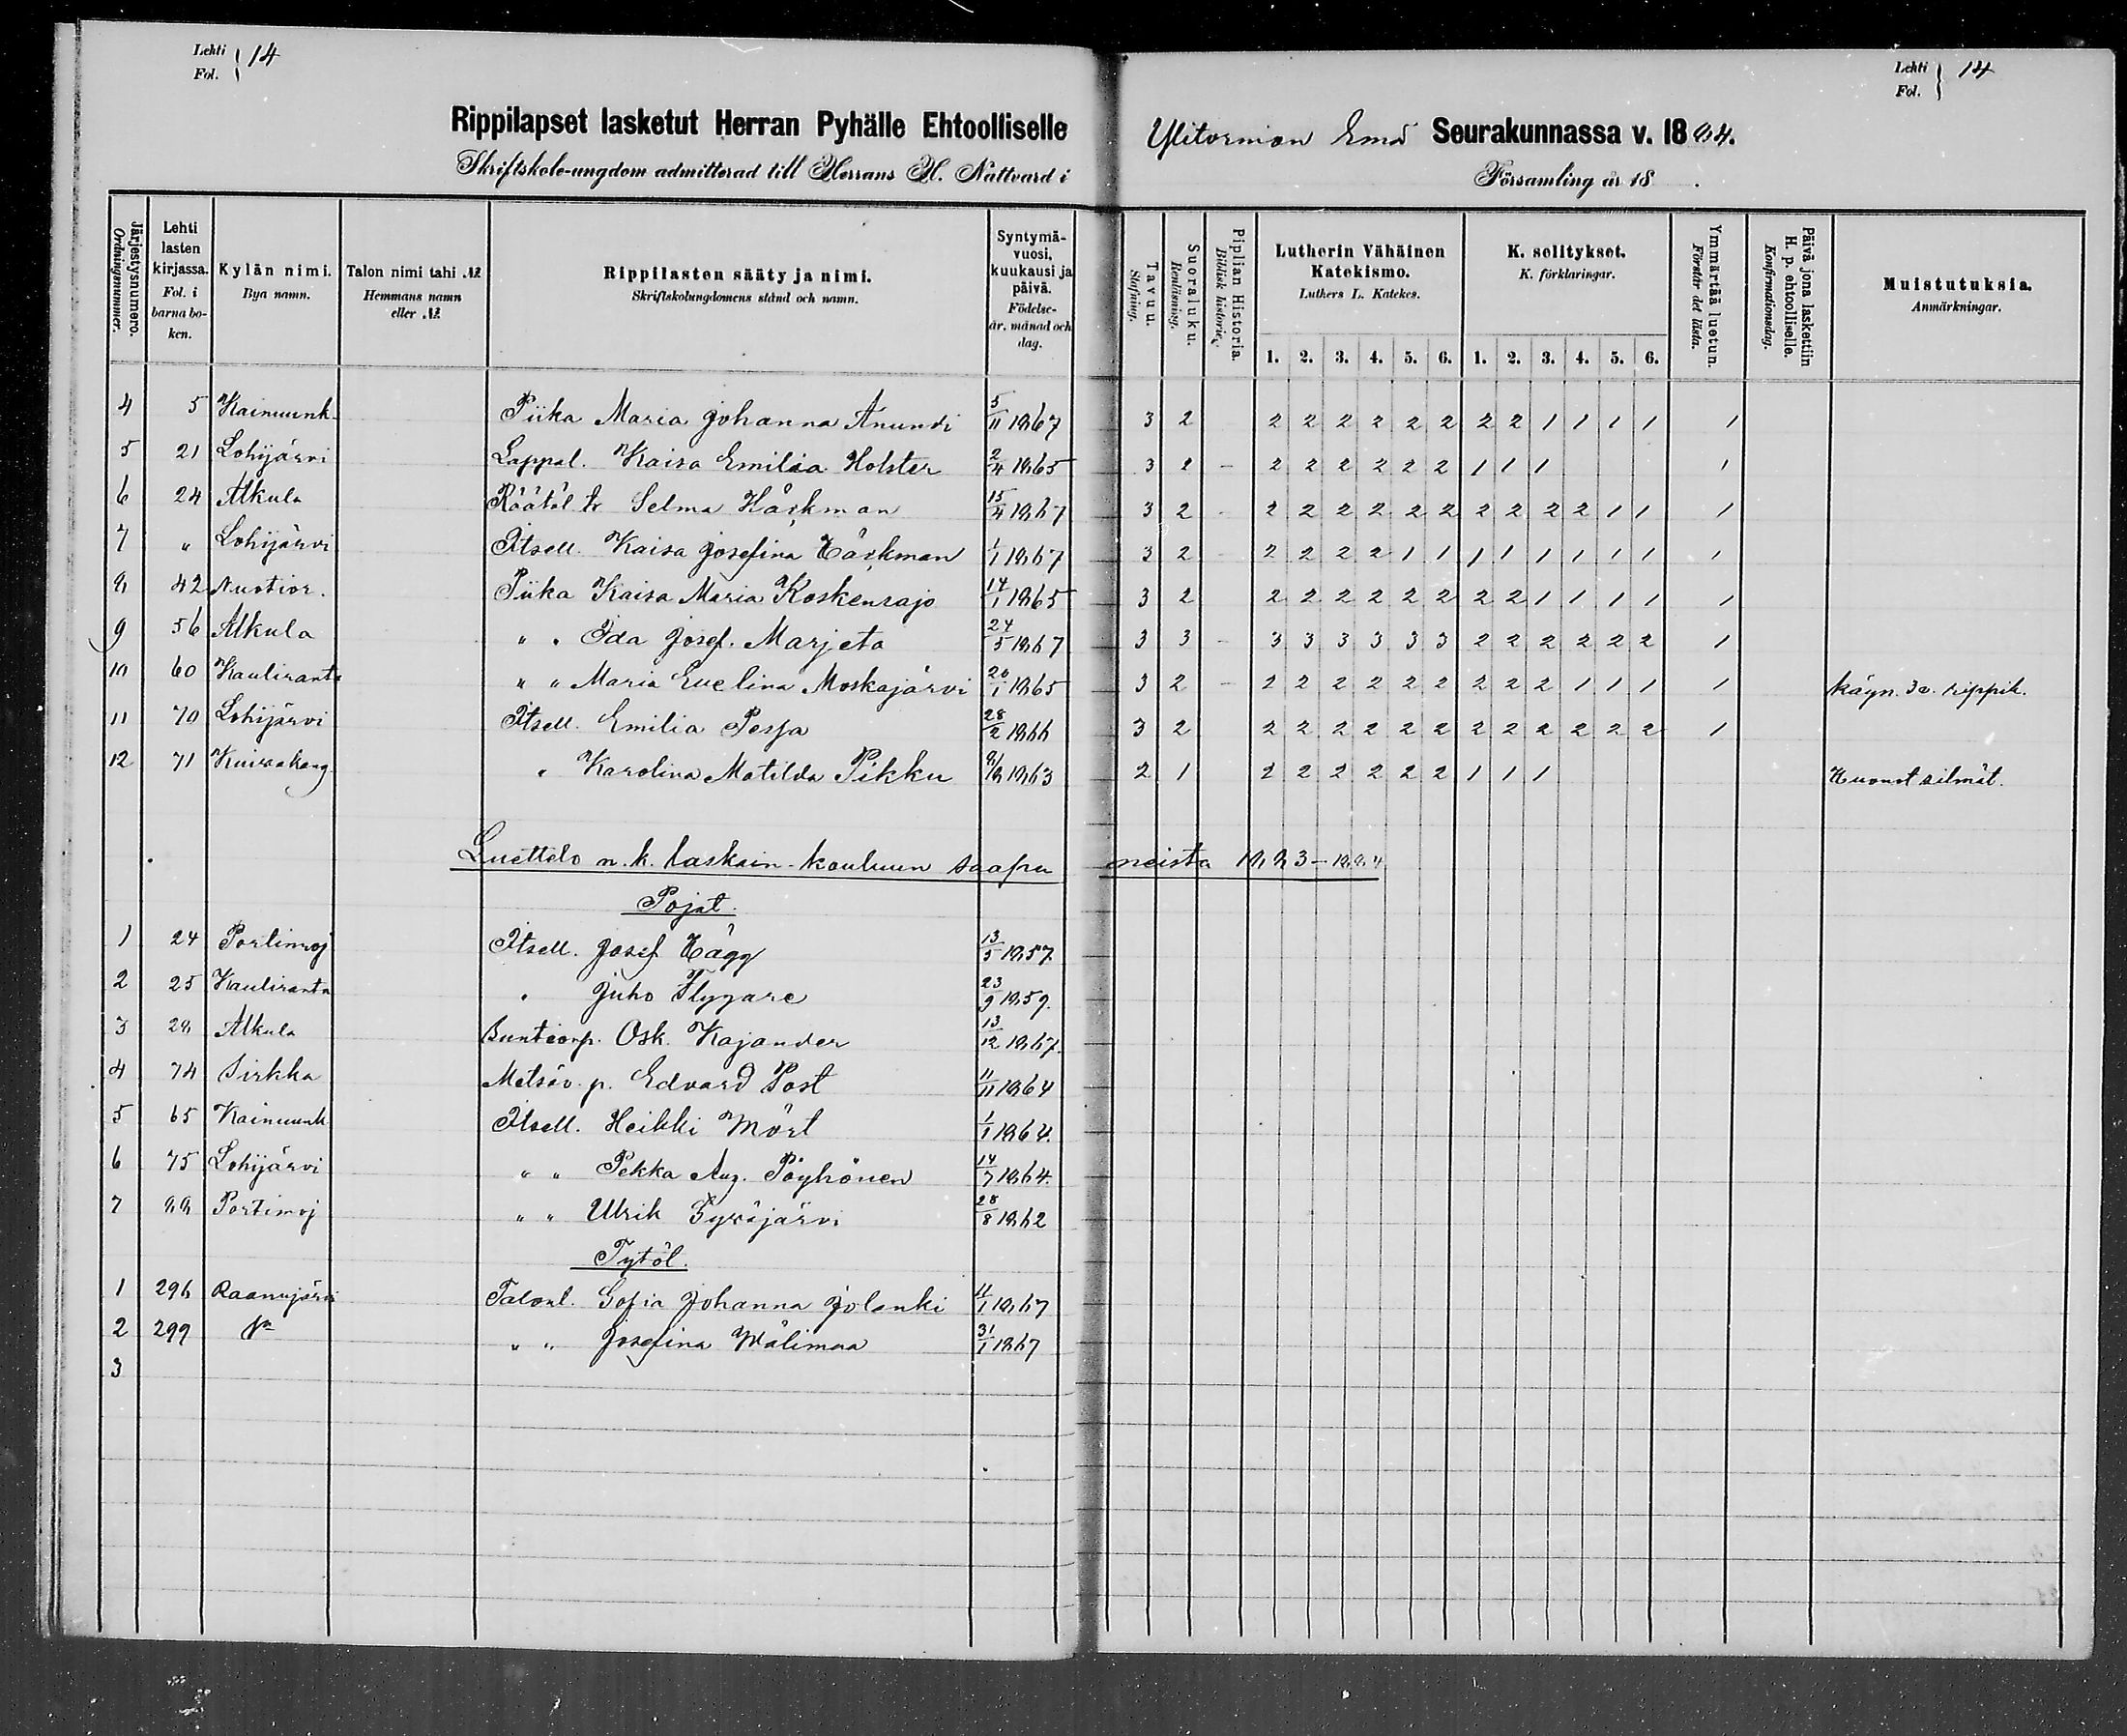 Lehti Fol. } 14
Lehti Fol. } 14
Rippilapset lasketut Herran Pyhälle Ehtoolliselle Ylitornion Emä Seurakunnassa v. 1884.
Skriftskole-ungdom admitterad till Herrans H. Nattvard i Församling år 18 .
Järjestysnumero. Ordningsnummer.
Lehti lasten kirjassa. Fol. i barnaboken.
Kylän nimi. Bya namn.
Talon nimi tahi №. Hemmans namn eller №.
Rippilasten sääty ja nimi. Skriftskolungdomens stånd och namn.
Syntymävuosi, kuukausi ja päivä. Födelseår, månad och dag.
Tavuu. Stafning.
Suoraluku. Renläsning.
Piplian Historia. Biblisk historie.
Lutherin Vähäinen Katekismo. Luthers L. Katekes.
1. 2. 3. 4. 5. 6.
K. selitykset. K. förklaringar.
1. 2. 3. 4. 5. 6.
Ymmärtää luetun. Förstår det lästa.
Päivä jona laskettiin H. p. ehtoolliselle. Konfirmationsdag.
Muistutuksia. Anmärkningar.
4 5 Kainuunk. Piika Maria Johanna Anundi 5/11 1867 3 2 2 2 2 2 2 2 2 2 1 1 1 1 1
5 21 Lohijärvi Lappal. Kaisa Emilia Holster 2/4 1865 3 2 - 2 2 2 2 2 2 1 1 1 1
6 24 Alkula Räätäl. tr Selma Häckman 15/4 1867 3 2 - 2 2 2 2 2 2 2 2 2 2 1 1 1
7 " Lohijärvi Itsell. Kaisa Josefina Häckman 1/1 1867 3 2 2 2 2 2 1 1 1 1 1 1 1 1 1
8 42 Nuotior. Piika Kaisa Maria Koskenrajo 14/1 1865 3 2 2 2 2 2 2 2 2 2 1 1 1 1 1
9 56 Alkula " " Ida Josef. Marjeta 24/5 1867 3 3 - 3 3 3 3 3 3 2 2 2 2 2 2 1
10 60 Kauliranta " " Maria Evelina Moskajärvi 20/1 1865 3 2 - 2 2 2 2 2 2 2 2 2 1 1 1 1 käyn. 3 v. rippik.
11 70 Lohijärvi Itsell. Emilia Pesja 28/2 1866 3 2 2 2 2 2 2 2 2 2 2 2 2 2 1
12 71 Kuivakang. " Karolina Matilda Pikku 8/8 1863 2 1 2 2 2 2 2 2 1 1 1 Huonot silmät.
Luettelo n. k. laskain-kouluun saapuneista 1883-1884
Pojat.
1 24 Portimoj Itsell. Josef Hägg 13/5 1857
2 25 Kauliranta " Juho Flygare 23/9 1859.
3 28 Alkula Osk. Kajander 13/12 1867.
4 74 Sirkka Metsäv. p. Edvard Post 11/11 1864
5 65 Kainuunk Itsell. Heikki Mört 1/1 1864.
6 75 Lohijärvi " " Pekka Aug. Pöyhönen 14/7 1864.
7 88 Portimoj " " Ulrik Syväjärvi 28/8 1862
Tytöt.
1 296 Raanujärvi Talonl. Sofia Johanna Jolanki 11/1 1867
2 299 " " Josefina Wälimaa 31/1 1867
3